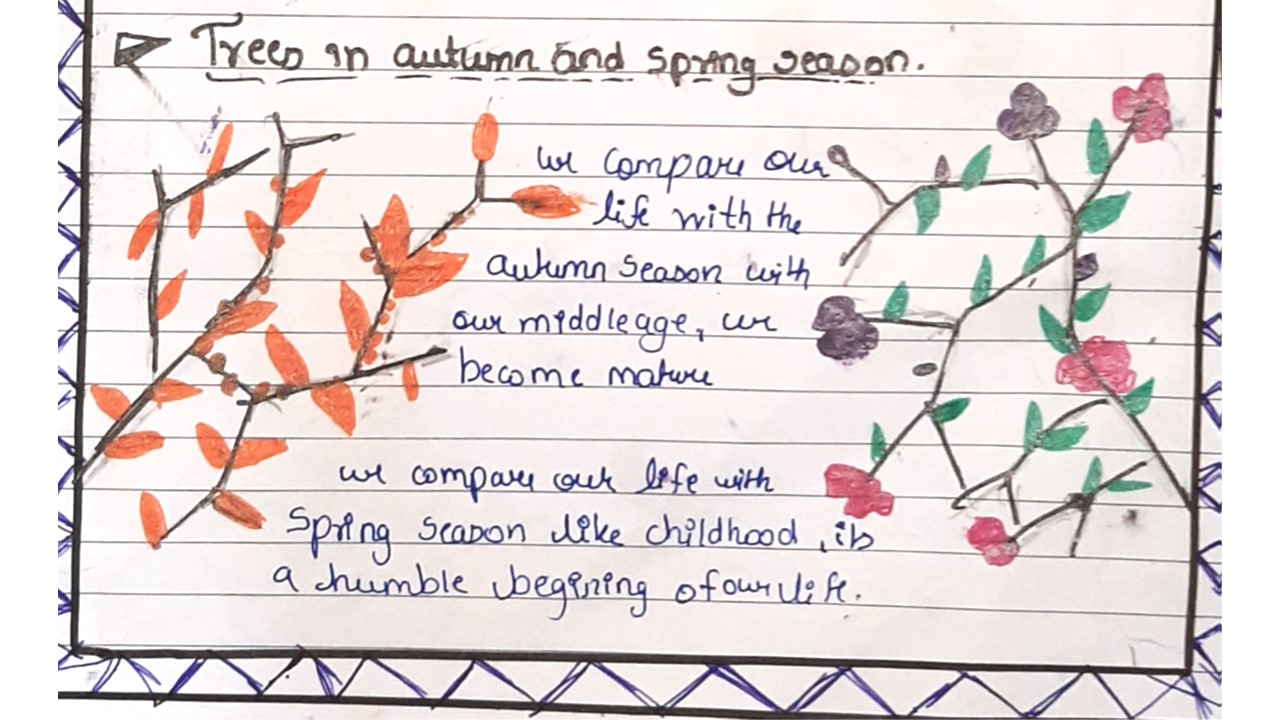 Trees in autumn and spring season.
we compare our
life with the
autumn season with
our middle age, we
become mature
we compare our life with
spring season like childhood, its
a humble begining of our life.